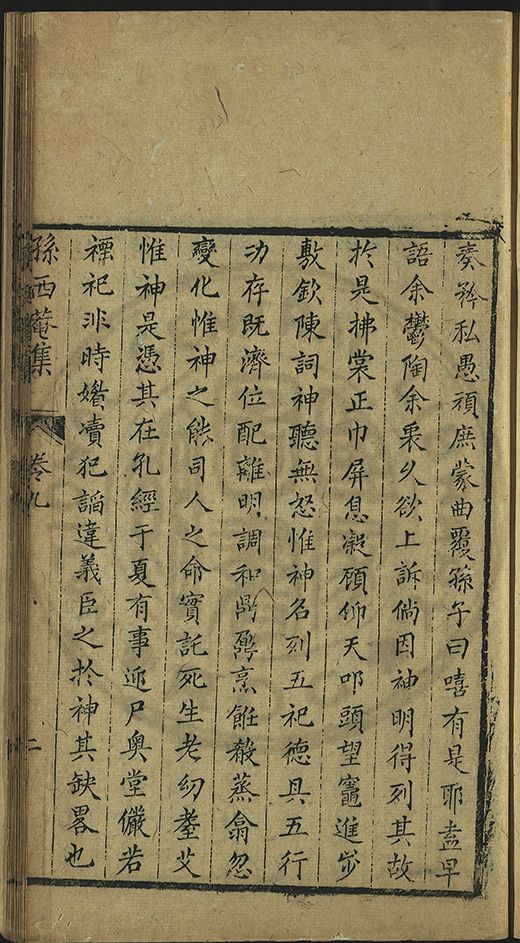 奏釋私愚頑庶蒙曲覆孫子曰嘻有是耶盍早
語余鬱陶余衷久欲上訴倘因神明得列其故
於是拂裳正巾屏息凝顧仰天叩頭望竈進步
敷歛陳詞神聽無恕惟神名列五祀德具五行
功存既濟位配離明調和鼎鼐烹飪殽蒸翕忽
變化惟神之能司人之命實託死生老幼耋艾
惟神是憑其在孔經于夏有事迎尸奥堂儼若
禋祀非時媟凟犯謟違義臣之於神其缺畧也
孫西菴集
卷九
二